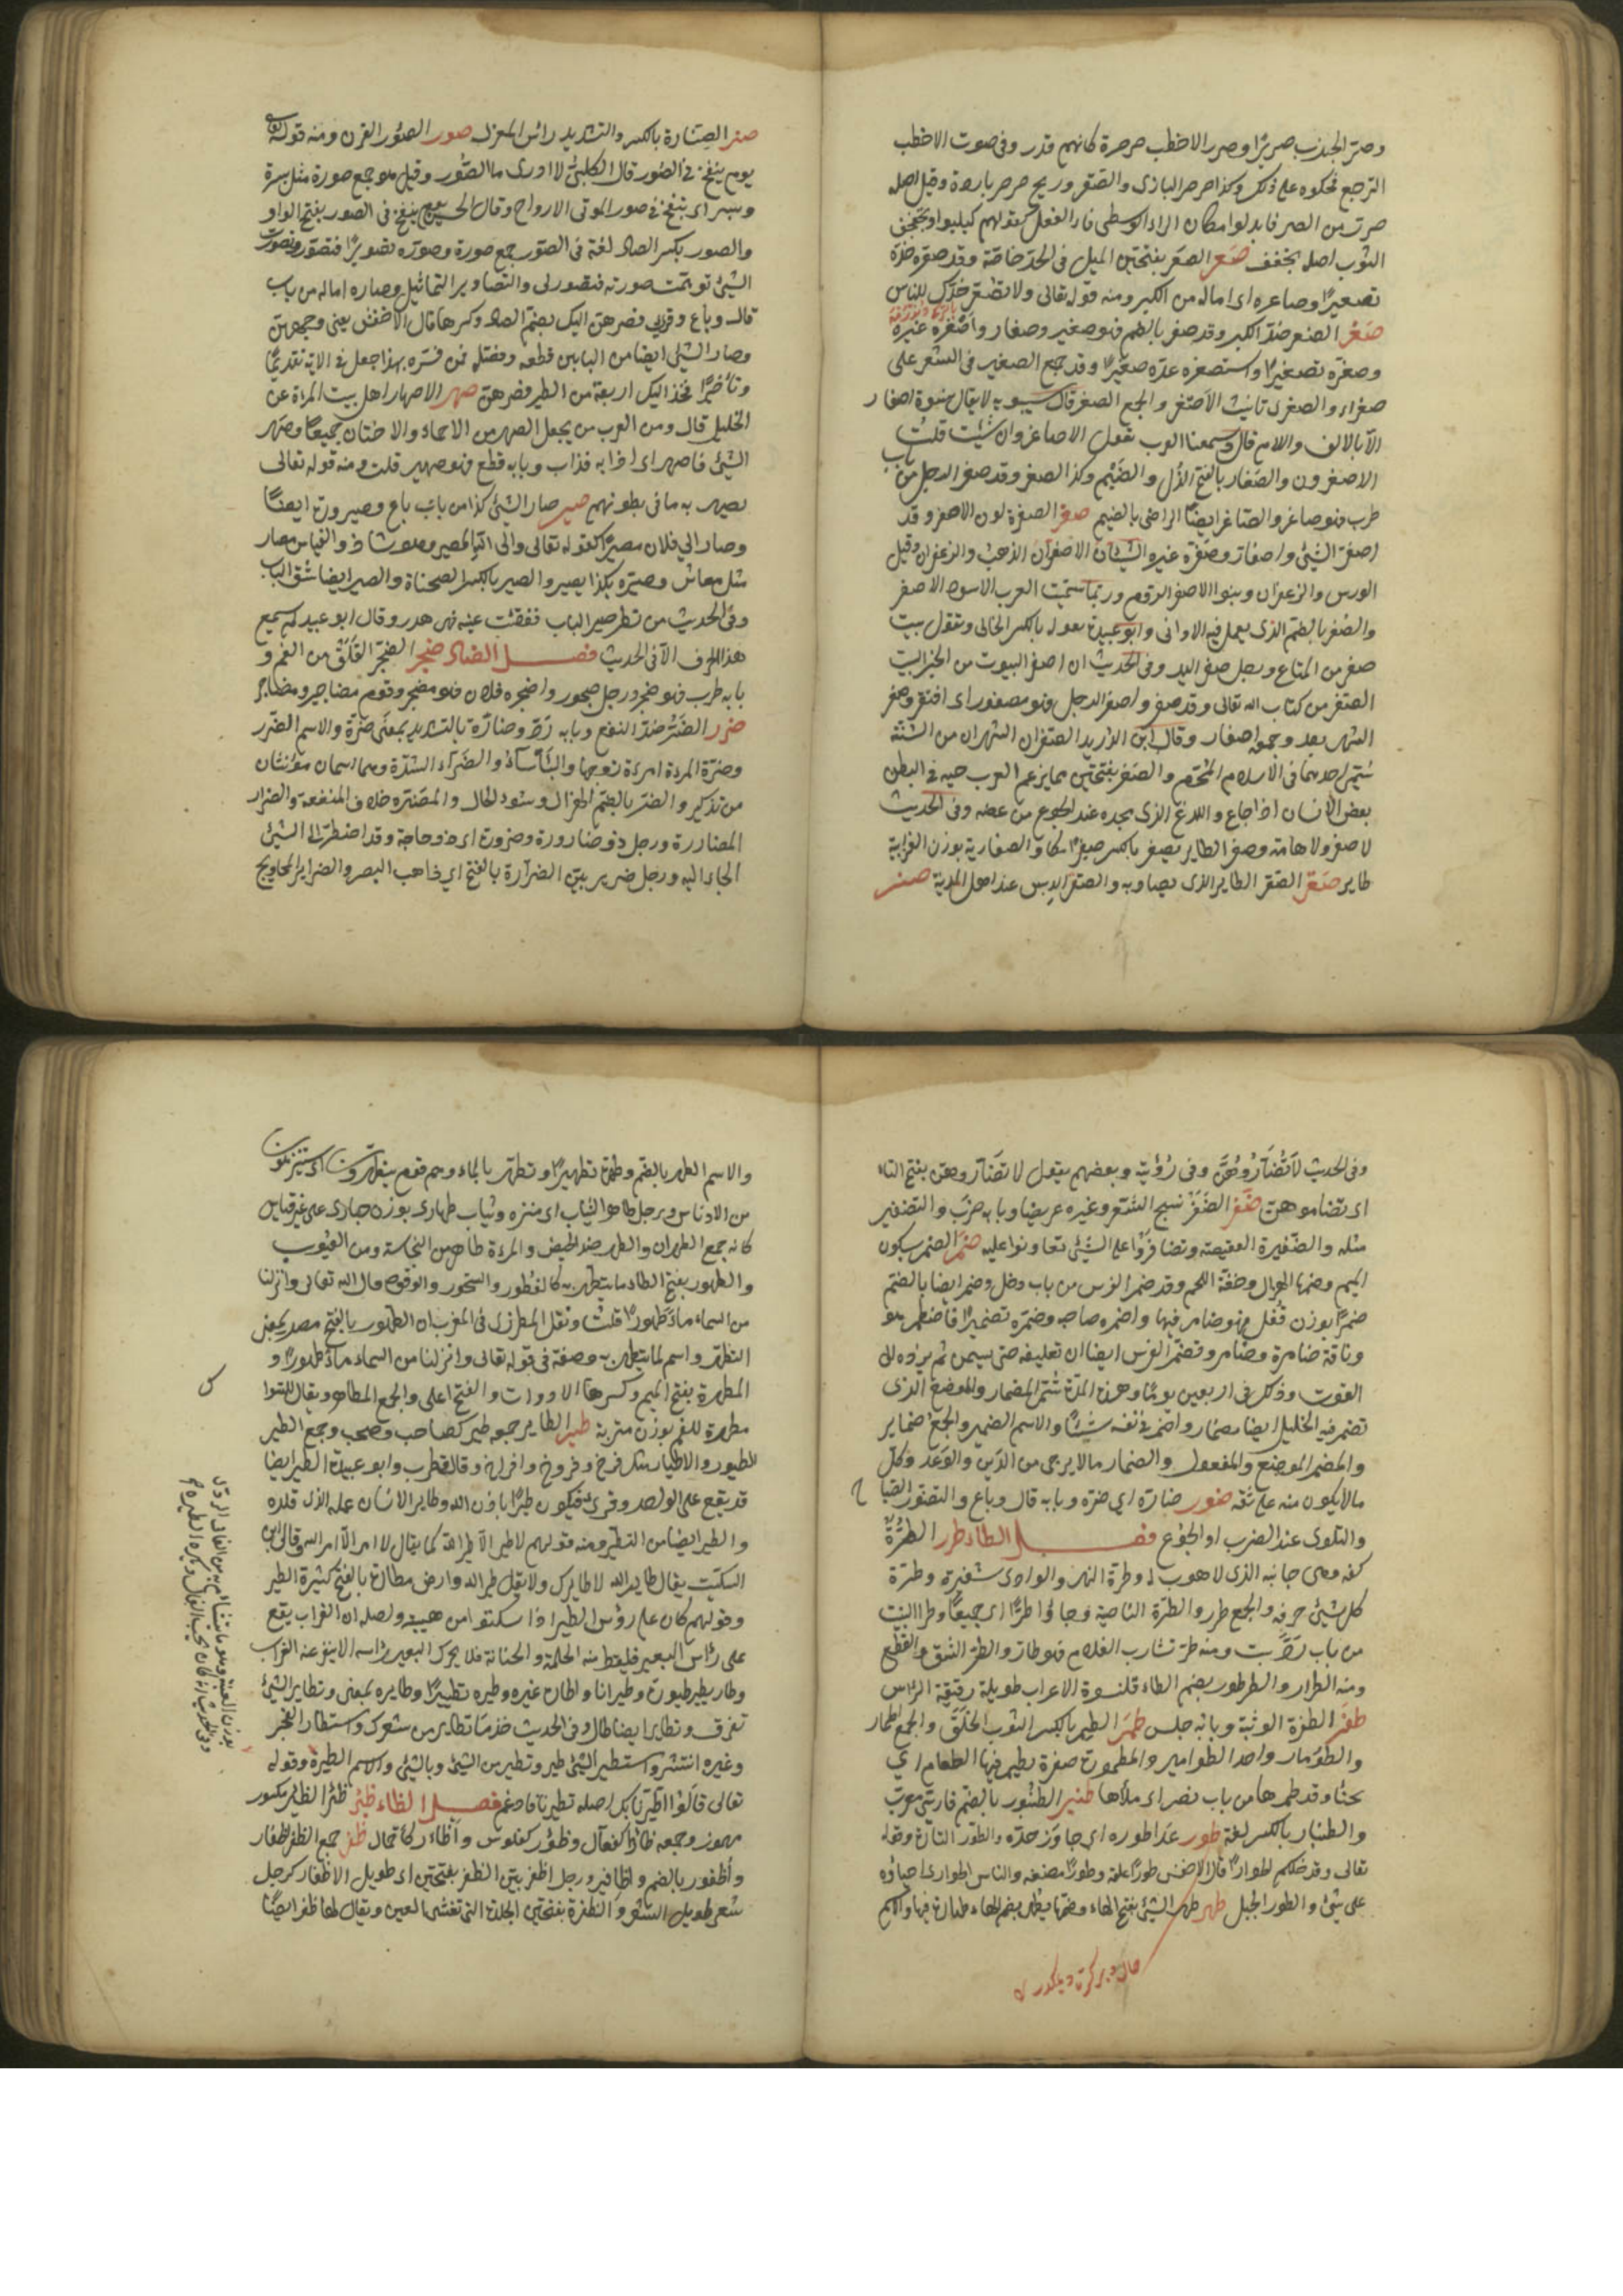 وصرّ الجندب صريرًا وصرصر الاخطب صرصرة كانهم قدر وفى صوت الاخطب
الترجيع فحكوه على ذلك وكذا صرصر البازى والصقر وريح صرصر باردة وقيل اصله
صرر من الصر فابدلوا مكان الراء الوسطى فاء الفعل كقولهم كبكبوا وتجفجف
الثوب اصله تجفف صعر الصعر بفتحتين الميل فى الخد خاصة وقد صعر خدّه
تصعيرًا وصاعره اى اماله من الكبر ومنه قوله تعالى ولا تصعّر خدّك للناس
صغر الصغر ضدّ الكبر وقد صغر بالضم فهو صغير وصغار واصغره غيره
وصغّره تصغيرًا واستصغره عدّه صغيرًا وقد جمع الصغير فى الشعر على
صغراء والصغرى تانيث الاصغر والجمع الصغر قال سيبويه لا يقال نسوة اصغار
الّا بالالف واللام قال وسمعنا العرب تقول الاصاغر وان شئت قلت
الاصغرون والصغار بالفتح الذّل والضيم وكذا الصغر وقد صغر الرجل من باب
طرب فهو صاغر والصاغر ايضًا الراضى بالضيم صفر الصفرة لون الاصفر وقد
اصفرّ الشئ واصفارّ وصفّره غيره الاصفران الذهب والزعفران وقيل
الورس والزعفران وبنوا الاصفر الروم وربّما سمّيت العرب الاسود الاصفر
والصفر بالضم الذى يعمل فيه الاوانى وابو عبيدة يقوله بالكسر الخالى وتقول بيت
صفر من المتاع ورجل صفر اليد وفى الحديث ان اصفر البيوت من الخير البيت
الصفر من كتاب الله تعالى وقد صفر واصفر الرجل فهو مصفور اى افتقر وصفر
الشهر بعد وجمعه اصفار وقال ابن دريد الصفران الشهران من السنة
سمّى احدهما فى الاسلام المحرّم والصفر بفتحتين مما يزعم العرب حية فى البطن
بعض الانسان اذا جاع واللدغ الذى يجده عند الجوع من عضه وفى الحديث
لا صفر ولا هامة وصفر الطاير يصفر بالكسر صفيرًا والصفارية بوزن الغرابية
طاير صقر الصقر الطاير الذى يصاد به والصقر الدبس عند اهل المدينة صنر
صنر الصنارة بالكسر والتشديد رأس المغزل صور الصور القرن ومنه قوله تعالى
يوم ينفخ فى الصور قال الكلبىّ لا ادرى ما الصور وقيل هو جمع صورة مثل بسرة
وبسر اى ينفخ فى صور الموتى الارواح وقال الحسن يوم ينفخ فى الصور بفتح الواو
والصور بكسر الصاد لغة فى الصور جمع صورة وصوّره تصويرًا فتصوّر وتصوّرت
الشئ توهّمت صورته فتصوّر لى والتصاوير التماثيل وصاره اماله من باب
قال وباع وقرئ فصرهنّ اليك بضمّ الصاد وكسرها قال الاخفش يعنى وجههنّ
وصار الشئ ايضا من البابين قطعه وفصّله فمن فسّره بهذا جعل فى الاية تقديمًا
وتأخيرًا فخذ اليك اربعة من الطير فصرهنّ صهر الاصهار اهل بيت المراة عن
الخليل قال ومن العرب من يجعل الصهر من الاحماء والاختان جميعًا وصهر
الشئ فانصهر اى اذابه فذاب وبابه قطع فهو صهير قلت ومنه قوله تعالى
يصهر به ما فى بطونهم صير صار الشئ كذا من باب باع وصيرورة ايضًا
وصار الى فلان مصيرًا كقوله تعالى والى الله المصير وهو شاذ والقياس مصار
مثل معاش وصيّره كذا يصير والصير بالكسر الصحناة والصير ايضا شقّ الباب
وفى الحديث من نظر صير الباب ففقئت عينه فهى هدر وقال ابو عبيد لم يسمع
هذا الحرف الّا فى الحديث فصل الضاد ضجر الضجر القلق من الغم و
بابه طرب فهو ضجر ورجل ضجور واضجره فلان فهو مضجر وقوم مضاجر ومضاجير
ضرر الضرّ ضدّ النفع وبابه ردّ وضارّه بالتشديد بمعنى ضرّه والاسم الضرر
وضرّة المرءة امرءة زوجها والبأساء والضرّاء الشدّة وهما اسمان مؤنثان
من تذكير والضرّ بالضمّ الهزال وسوء الحال والمضرّة خلاف المنفعة والضرار
المضاررة ورجل ذو ضارورة وضرورة اى ذو حاجة وقد اضطرّ الى الشئ
الجاء اليه ورجل ضرير بيّن الضرارة بالفتح اى ذاهب البصر والضراير المحاويج
وفى الحديث لا تُضارّون وفى رؤية وبعضهم يقول لا تضارّون بفتح التاء
اى تضاموهن ضفر الضفر نسج الشعر وغيره عريضا وبابه ضرب والتضفير
مثله والضفيرة العقيصة وتضافروا على الشئ تعاونوا عليه ضمر الضمر بسكون
الميم وضمها الهزال وخفّة اللحم وقد ضمر الفرس من باب دخل وضمر ايضا بالضم
ضمرًا بوزن قفل فهو ضامر فيهما واضمره صاحبه وضمّره تضميرًا فاضطمر هو
وناقة ضامرة وضامر وتضمّر الفرس ايضا ان تعليفه حتى يسمن ثم يردّه الى
القوت وذلك فى اربعين يومًا وهذه المدّة تسمّى المضمار والموضع الذى
تضمر فيه الخليل ايضا مضمار واضمر فى نفسه شيئًا والاسم الضمير والجمع ضماير
والمضمر الموضع والمفعول والضمار ما لا يرجى من الدّين والوعد وكلّ
ما لا يكون منه على ثقة ضور ضارّه اى ضرّه وبابه قال وباع والتضوّر الصّيا ح
والتلوى عند الضرب او الجوع فصل الطاء طرر الطرّة
كفه وهى جانبه الذى لا هدب له وطرة النهر والوادى شفيره وطرّة
كل شئ حرفه والجمع طرر والطرّة الناصية وجاؤا طرًّا اى جميعًا وطرّ النبت
من باب ردّ نبت ومنه طرّ شارب الغلام فهو طارّ والطرّ الشقّ والقطع
ومنه الطرار والطرطور بضم الطاء قلنسوة الاعراب طويلة رقيقة الرأس
طفر الطفرة الوثبة وبابه جلس طمر الطمر بالكسر الثوب الخلق والجمع اطمار
والطومار واحد الطوامير والمطمورة حفرة يطمر فيها الطعام اى
يخبأ وقد طمرها من باب نصر اى ملأها طنبر الطنبور بالضم فارسىّ معرّب
والطنبار بالكسر لغة طور عدا طوره اى جاوز حدّه والطور التارة وقوله
تعالى وقد خلقكم اطوارًا قال الاخفش طورًا علقة وطورًا مضغة والناس اطوار اى اصناف
على شئ والطور الجبل طهر طهر الشئ بفتح الهاء وضمها يطهر بضم الهاء طهارة فيهما والاسم
والاسم الطهر بالضم وطهّره تطهيرًا وتطهّر بالماء وهم قوم يتطهّرون اى يتنزهون
من الادناس ورجل طاهر الثياب اى منزه وثياب طهارى بوزن حبارى على غير قياس
كانه جمع الطهران والطهر ضد الحيض والمرءة طاهر من النجاسة ومن العيوب
والطهور بفتح الطاء ما يتطهر به كالفطور والسحور والوقود قال الله تعالى وانزلنا
من السماء ماءً طهورًا قلت ونقل المطرزى فى المغرب ان الطهور بالفتح مصدر بمعنى
التطهّر واسم لما يتطهر به وصفة فى قوله تعالى وانزلنا من السماء ماءً طهورًا و
المطهرة بفتح الميم وكسرها الادوات والفتح اعلى والجمع المطاهر ويقال السواك
مطهرة للفم بوزن متربة طير الطاير جمعه طير كصاحب وصحب وجمع الطير
الطيور والاطيار مثل فرخ وفروخ وافراخ وقال قطرب وابو عبيدة الطير ايضا
قد يقع على الواحد وقرئ فيكون طيرًا باذن الله وطاير الانسان عمله الذى قلده
والطير ايضا من التطيّر ومنه قولهم لا طير الّا طير الله كما يقال لا امر الّا امر الله قال ابن
السكّيت يقال طاير الله لا طايرك ولا تقل طير الله وارض مطارة بالفتح كثيرة الطير
وقولهم كان على رؤس الطير اذا سكتوا من هيبة واصله ان الغراب يقع
على رأس البعير فيلقط منه الحلمة والحمنانة فلا يحرك البعير رأسه لئلا ينفر عنه الغراب
وطار يطير طيرورة وطيرانا واطاره غيره وطيّره تطييرًا وطايره بمعنى وتطاير الشئ
تفرق وتطاير ايضا طال وفى الحديث خذ ما تطاير من شعرك واستطار الفجر
وغيره انتشر واستطير الشئ طيّر وتطيّر من الشئ وبالشئ والاسم الطيرة وقوله
تعالى قالوا اطّيّرنا بك اصله تطيّرنا فادغم فصل الظاء ظئر الظئر مكسور
مهموز وجمعه ظؤار كفعال وظؤر كفلوس واظآر كأحمال ظفر جمع الظفر اظفار
واُظفور بالضم واظافير ورجل اظفر بيّن الظفر بفتحتين اى طويل الاظفار كرجل
شعر طويل الشعر والظفرة بفتحتين الجلدة التى تغشى العين ويقال لها ظفر ايضًا